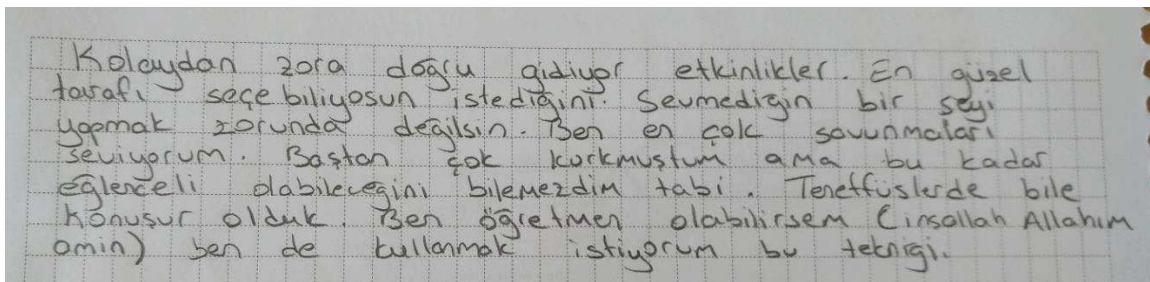 Kolaydan zora doğru gidiyor etkinlikler. En güzel
tarafı seçebiliyosun istediğini. Sevmediğin bir şeyi
yapmak zorunda değilsin. Ben en çok savunmaları
seviyorum. Baştan çok korkmuştum ama bu kadar
eğlenceli olabileceğini bilemezdim tabi. Teneffüslerde bile
konuşur olduk. Ben öğretmen olabilirsem (inşallah Allahım
amin) ben de kullanmak istiyorum bu tekniği.